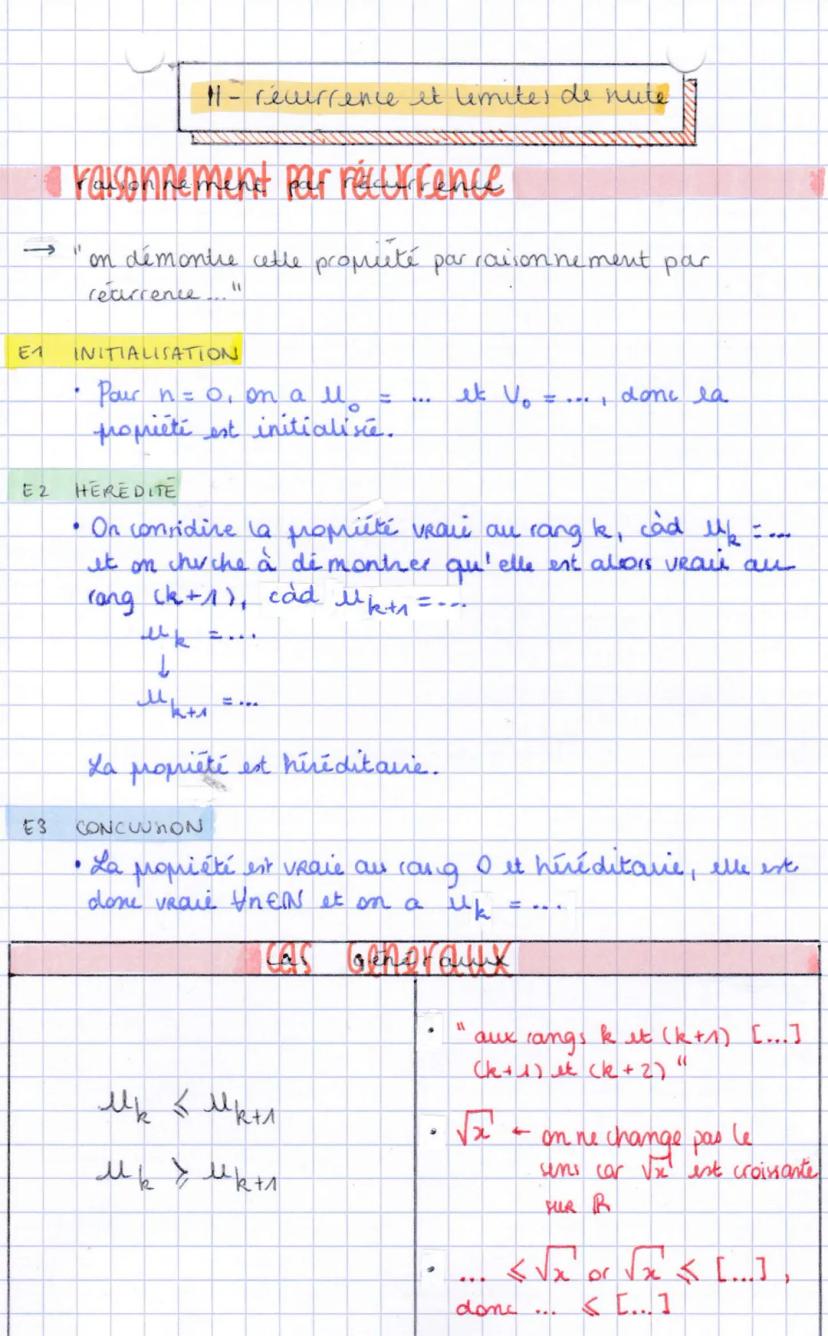 11 - récurrence et limites de suite
raisonnement par récurrence
→ "on démontre cette propriété par raisonnement par
récurrence..."
E1 INITIALISATION
• Pour n = 0, on a u₀ = ... et V₀ = ..., donc la
propriété est initialisée.
E2 HÉRÉDITÉ
• On considère la propriété vraie au rang k, càd uₖ = ...
et on cherche à démontrer qu'elle est alors vraie au
rang (k+1), càd uₖ₊₁ = ...
uₖ = ...
↓
uₖ₊₁ = ...
La propriété est héréditaire.
E3 CONCLUSION
• La propriété est vraie au rang 0 et héréditaire, elle est
donc vraie ∀n∈ℕ et on a uₖ = ...
Cas Généraux
• "aux rangs k et (k+1) [...]
(k+1) et (k+2)"
uₖ ⩽ uₖ₊₁
uₖ ⩾ uₖ₊₁
• √x ← on ne change pas le
sens car √x est croissante
sur ℝ
• ... ⩽ √x or √x ⩽ [...],
donc ... ⩽ [...]